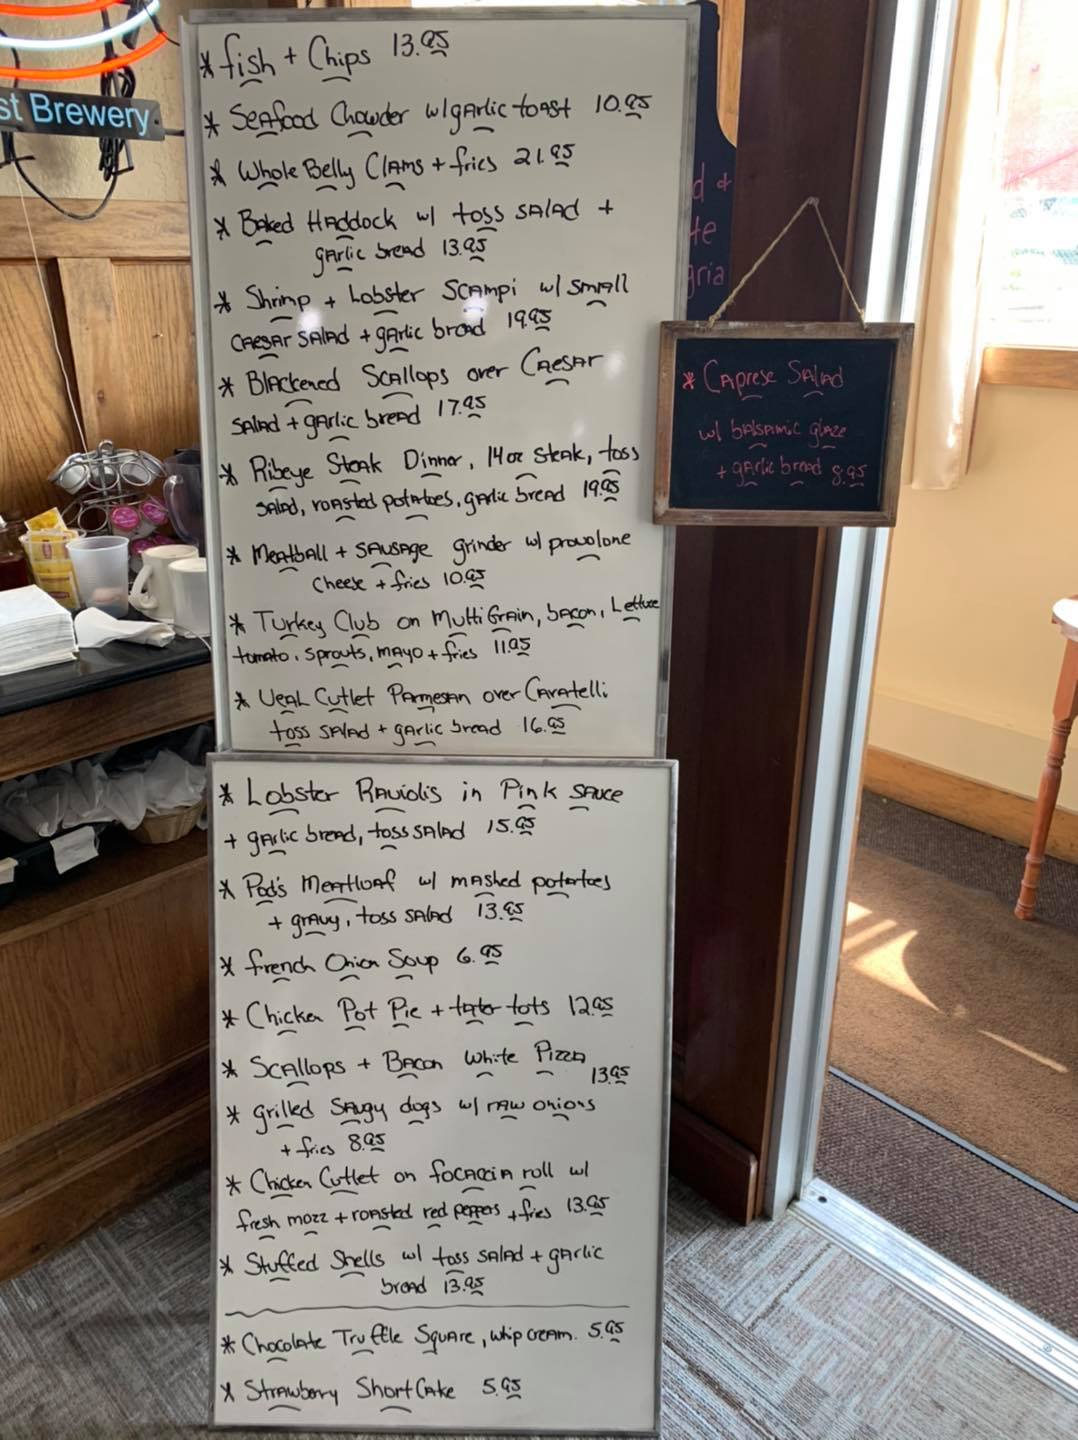 st Brewery
* fish + Chips 13.95
* Seafood Chowder w/garlic toast 10.95
* Whole Belly Clams + fries 21.95
* Baked Haddock w/ toss salad +
garlic bread 13.95
* Shrimp + Lobster Scampi w/ small
caesar salad + garlic bread 19.95
* Blackened Scallops over Caesar
salad + garlic bread 17.95
* Ribeye Steak Dinner, 14oz steak, toss
salad, roasted potatoes, garlic bread 19.95
* Meatball + sausage grinder w/ provolone
cheese + fries 10.95
* Turkey Club on Multi Grain, bacon, Lettuce
tomato, sprouts, mayo + fries 11.95
* Veal Cutlet Parmesan over Cavatelli
toss salad + garlic bread 16.95
* Lobster Raviolis in Pink sauce
+ garlic bread, toss salad 15.95
* Pod's Meatloaf w/ mashed potatoes
+ gravy, toss salad 13.95
* french Onion Soup 6.95
* Chicken Pot Pie + tator tots 12.95
* Scallops + Bacon White Pizza
13.95
* grilled Saugy dogs w/ raw onions
+ fries 8.95
* Chicken Cutlet on focaccia roll w/
fresh mozz + roasted red peppers + fries 13.95
* Stuffed Shells w/ toss salad + garlic
bread 13.95
* Chocolate Truffle Square, whip cream. 5.95
* Strawberry ShortCake 5.95
d +
te
gria
* Caprese Salad
w/ balsamic glaze
+ garlic bread 8.95